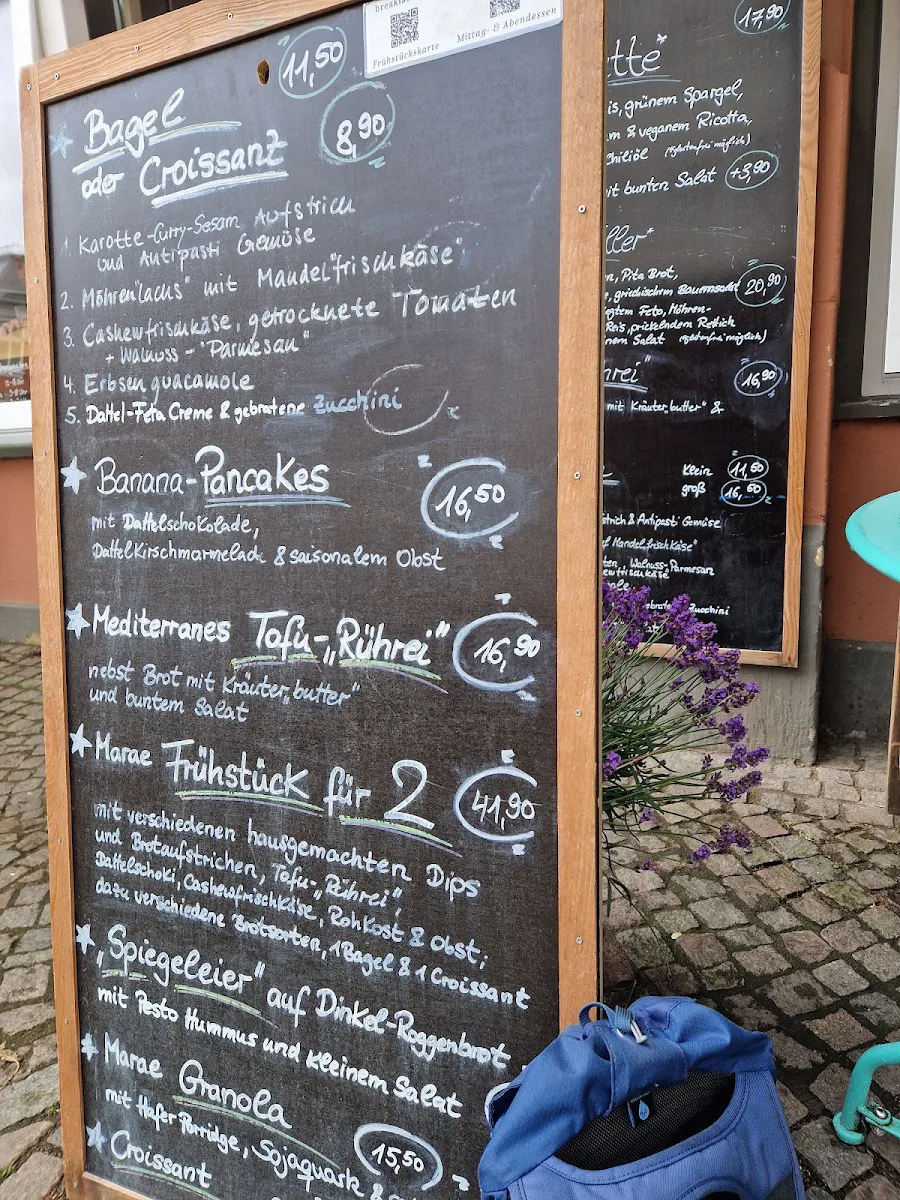 Frühstückskarte
Mittag- & Abendessen
11,50
Bagel
8,90
oder Croissant
1. Karotte-Curry-Sesam Aufstrich
und Antipasti Gemüse
2. Möhren"lachs" mit Mandel"frischkäse"
3. Cashewfrischkäse, getrocknete Tomaten
+ Walnuss-"Parmesan"
4. Erbsenguacamole
5. Dattel-Feta Creme & gebratene Zucchini
Banana-Pancakes
16,50
mit Dattelschokolade,
Dattelkirschmarmelade & saisonalem Obst
Mediterranes Tofu-„Rührei"
16,90
nebst Brot mit Kräuter„butter"
und buntem Salat
Marae Frühstück für 2
41,90
mit verschiedenen hausgemachten Dips
und Brotaufstrichen, Tofu-„Rührei",
Dattelschoki, Cashewfrischkäse, Rohkost & Obst;
dazu verschiedene Brotsorten, 1 Bagel & 1 Croissant
„Spiegeleier" auf Dinkel-Roggenbrot
mit Pesto Hummus und kleinem Salat
Marae Granola
mit Hafer Porridge, Sojaquark &
15,50
Croissant
17,90
tte"
is, grünem Spargel,
m & veganem Ricotta,
Chiliöl (glutenfrei möglich)
it bunten Salat +3,90
ller"
n, Pita Brot,
, griechischem Bauernsalat
20,90
egtem Feto, Möhren-
Reis, prickelndem Rettich
nem Salat (glutenfrei möglich)
hrei"
16,90
mit Kräuter„butter" &
klein 11,50
groß 16,50
strich & Antipasti Gemüse
f Mandel„frischkäse"
ten, Walnuss-Parmesan
ewfrischkäse
ebratene Zucchini